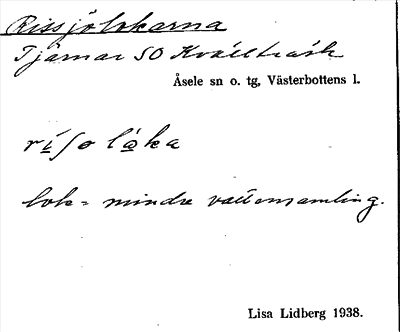 Rissjölokarna
Tjärnar SO Kvällträsk
Åsele sn o. tg, Västerbottens l.
ríſo lo̲ka
lok = mindre vattensamling.
Lisa Lidberg 1938.